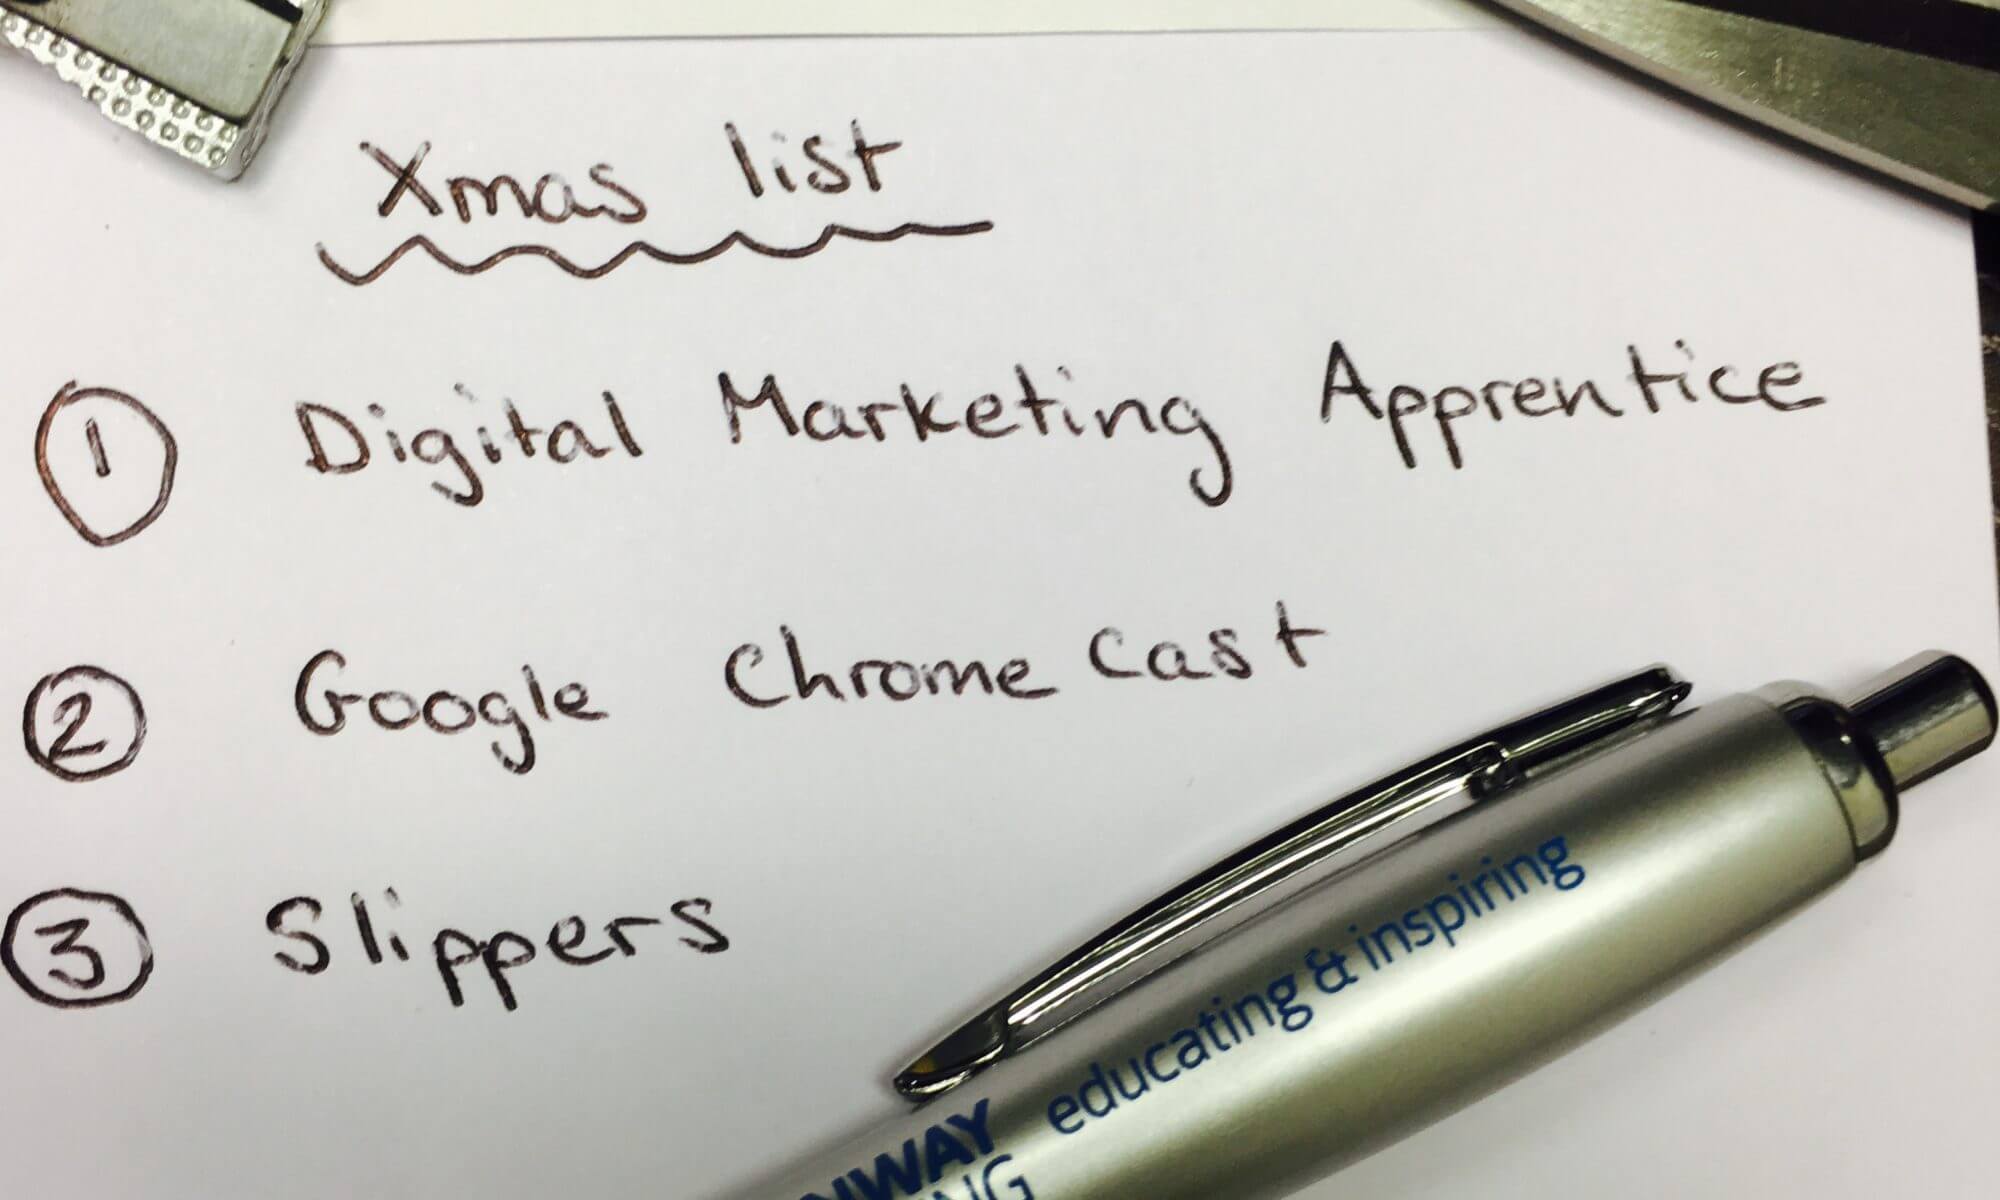 Xmas list
1 Digital Marketing Apprentice
2 Google Chrome Cast
3 Slippers
educating & inspiring